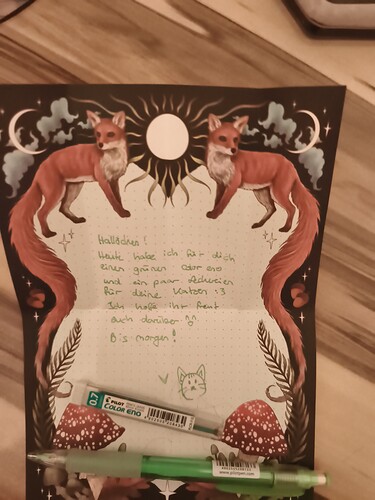 Hallöchen!
Heute habe ich für dich
einen grünen Color eno
und ein paar Leckereien
für deine Katzen :3
Ich hoffe ihr freut
euch darüber ^^
Bis morgen!
0.7
PILOT
COLOR ENO
www.pilotpen.com